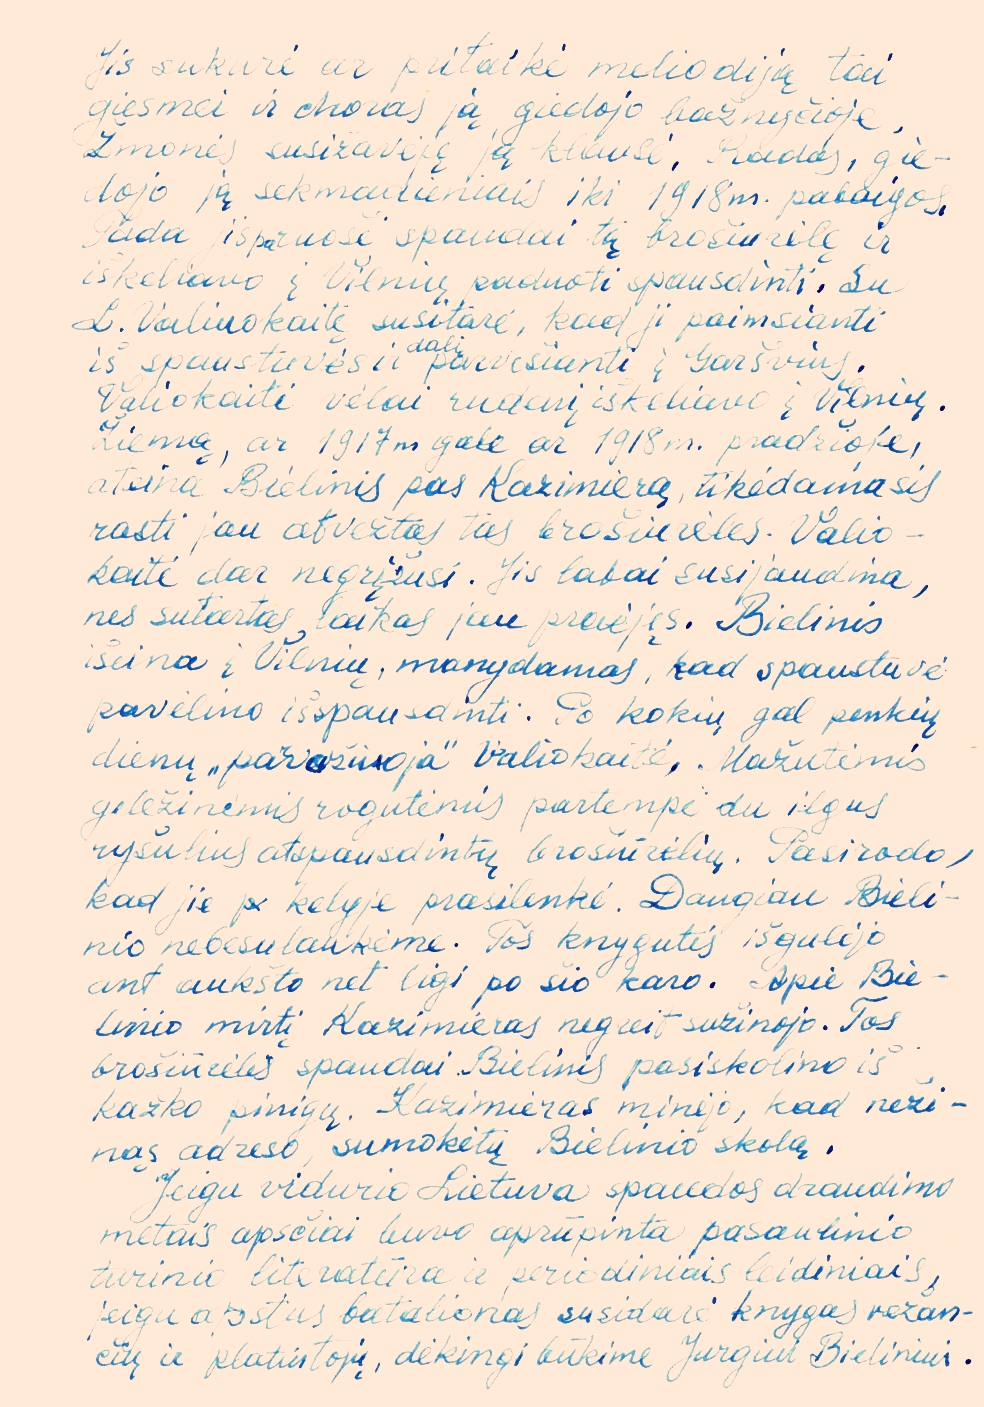 Jis sukūrė ar pritaikė meliodiją tai
giesmei ir choras ją giedojo bažnyčioje,
Žmonės susižavėję ją klausė. Rados, gie-
dojo ją sekmadieniais iki 1918m. pabaigos.
Tada jis paruošė spaudai tą brošiurėlę ir
iškeliavo į Vilnių paduoti spausdinti. Su
L. Valiuokaitė susitarė, kad ji paimsianti
iš spaustuvės ir dalį parvešianti į Garšvius.
Valiokaitė vėlai rudenį iškeliavo į Vilnių.
Žiemą, ar 1917m gale ar 1918m. pradžioje,
ateina Bielinis pas Kazimierą, tikėdamasis
rasti jau atvežtas tas brošiurėles. Valio-
kaitė dar negrįžusi. Jis labai susijaudina,
nes sutartas laikas jau praėjęs. Bielinis
išeina į Vilnių, manydamas, kad spaustuvė
pavėlino išspausdinti. Po kokių gal penkių
dienų „parvažiuoja" Valiokaitė,. Mažutėmis
geležinėmis rogutėmis partempė du ilgus
ryšulius atspausdintų brošiūrėlių. Pasirodo,
kad jie kelyje prasilenkė. Daugiau Bieli-
nio nebesulaukėme. Tos knygutės išgulėjo
ant aukšto net ligi po šio karo. Apie Bie-
linio mirtį Kazimieras negreit sužinojo. Tos
brošiūrėlės spaudai Bielinis pasiskolino iš
kažko pinigų. Kazimieras minėjo, kad neži-
nąs adreso, sumokėtų Bielinio skolą.
Jeigu vidurio Lietuva spaudos draudimo
metais apsčiai buvo aprūpinta pasaulinio
turinio literatūra ir periodiniais leidiniais,
jeigu apstus batalionas susidarė knygas vežan-
čių ir platintojų, dėkingi būkime Jurgiui Bieliniui.